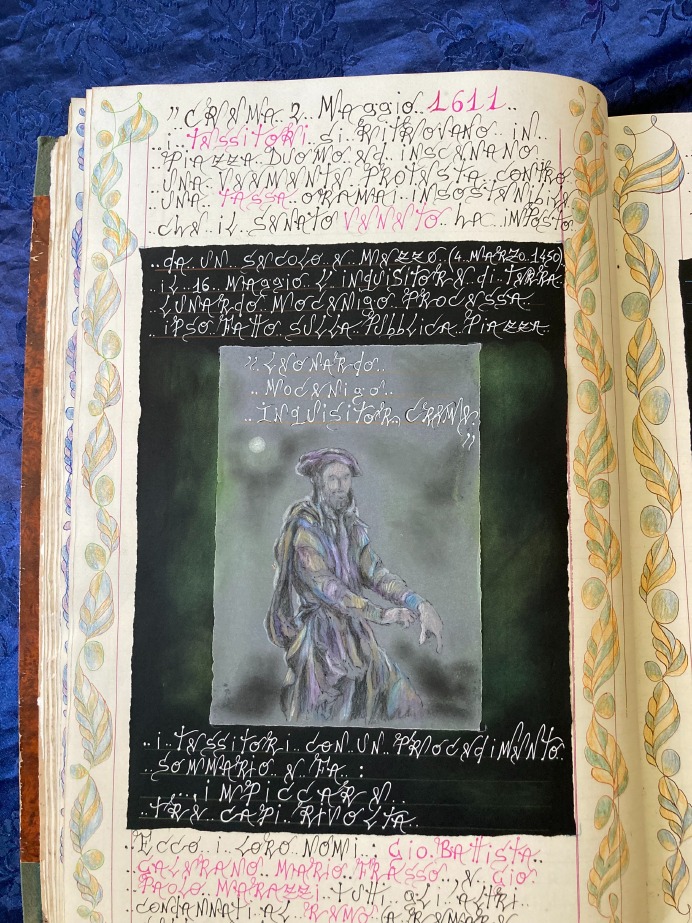 " CREMA 2 Maggio 1611..
..i.. TESSITORI Si RITROVANO IN..
PIAZZA DUOMO Ed INSCENANO
UNA VEEMENTE PROTESTA CONTRO
UNA.. TASSA ORAMAI INSOSTENIBILE
..CHE IL SENATO VENETO HA IMPOSTO
..dA UN SECOLO E MEZZO (4 MARZO 1450)
..iL 16 MAggio L'iNQUISITORE di TERRA
LUNARdO MOCENIGO PROCESSA
iPSO FATTO SULLA PUBBLICA PIAZZA..
" LEONARdO..
.. MOCENIgO..
.. INQUISITOR CREME
"
..i TESSITORI CON UN PROCEdIMENTO..
..SOMMARIO E FA.. :
....iMPICCARE..
..TRE CAPI RIVOLTA..
Ecco i LORO NOMi : giO BATTISTA..
GALERANO MARIO FRASSO & giO
PAOLO MARAZZI TUTTi gLi ALTRI..
CONdANNATi AL REMO